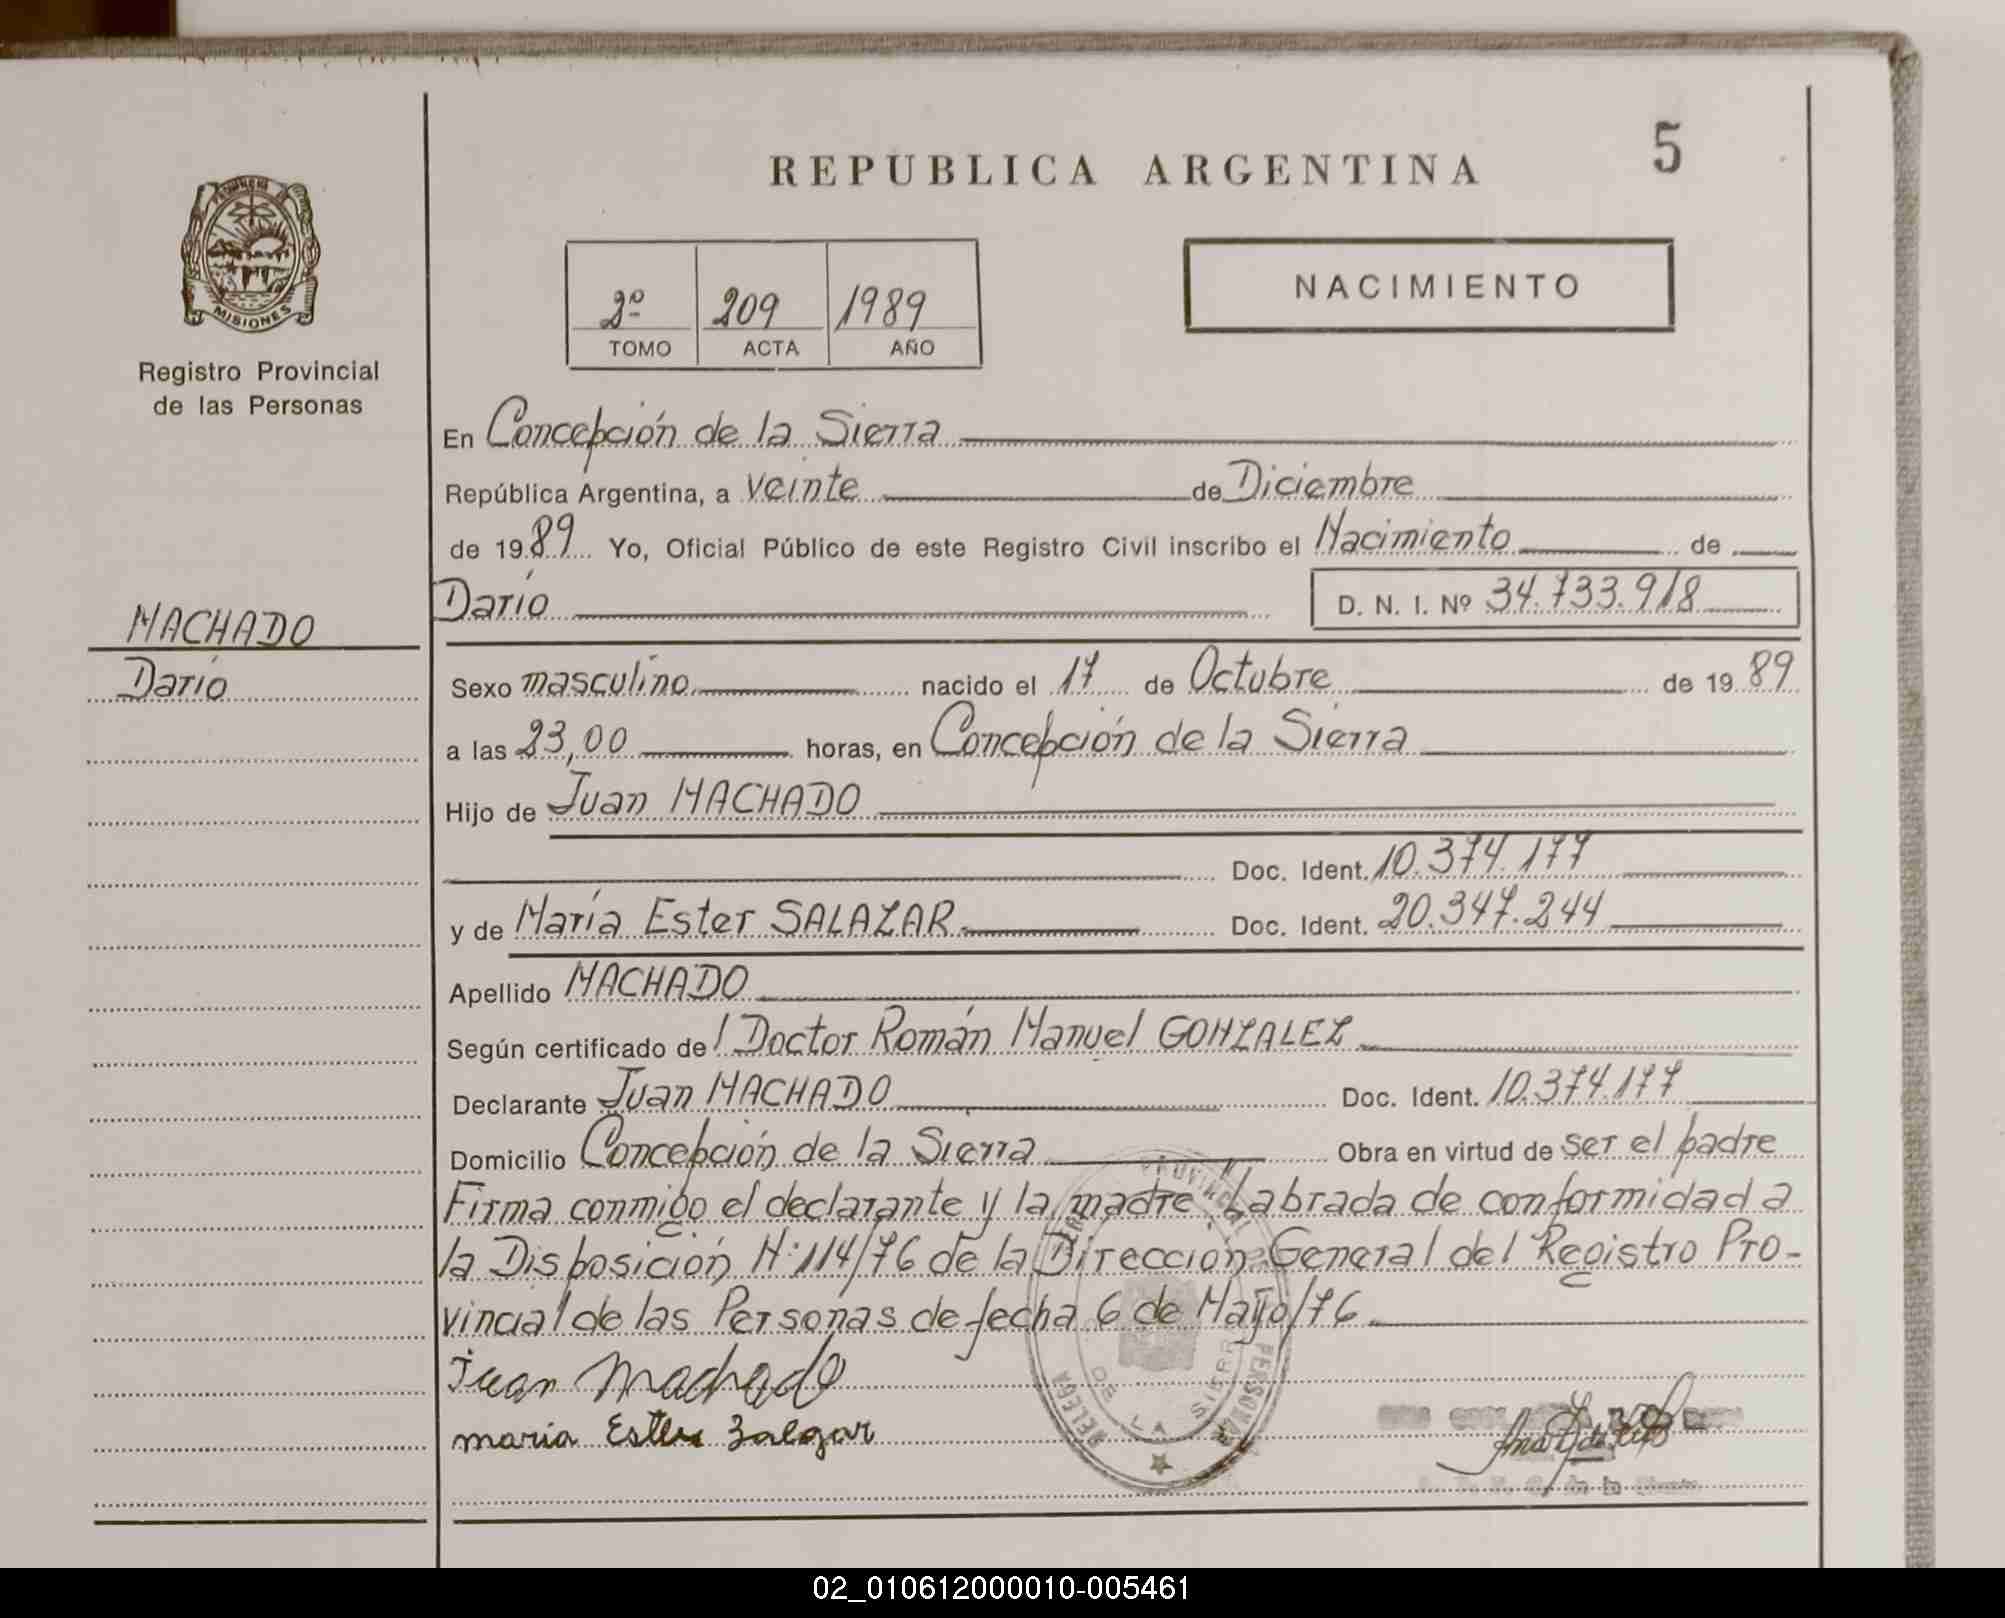 5
REPUBLICA ARGENTINA
MISIONES
Registro Provincial
de las Personas
2º 209 1989
TOMO ACTA AÑO
NACIMIENTO
En Concepción de la Sierra
República Argentina, a veinte de Diciembre
de 1989 Yo, Oficial Público de este Registro Civil inscribo el Nacimiento de
MACHADO
Darío
Darío D. N. I. Nº 34.733.918
Sexo masculino nacido el 17 de Octubre de 1989
a las 23,00 horas, en Concepción de la Sierra
Hijo de Juan MACHADO
Doc. Ident. 10.374.177
y de María Ester SALAZAR Doc. Ident. 20.347.244
Apellido MACHADO
Según certificado de l Doctor Román Manuel GONZALEZ
Declarante Juan MACHADO Doc. Ident. 10.374.177
Domicilio Concepción de la Sierra Obra en virtud de ser el padre
Firma conmigo el declarante y la madre. Labrada de conformidad a
la Disposición N:114/76 de la Dirección General del Registro Pro-
vincial de las Personas de fecha 6 de Mayo/76
Juan Machado
maria Ester Zalazar
DE LA SIERRA
02_010612000010-005461